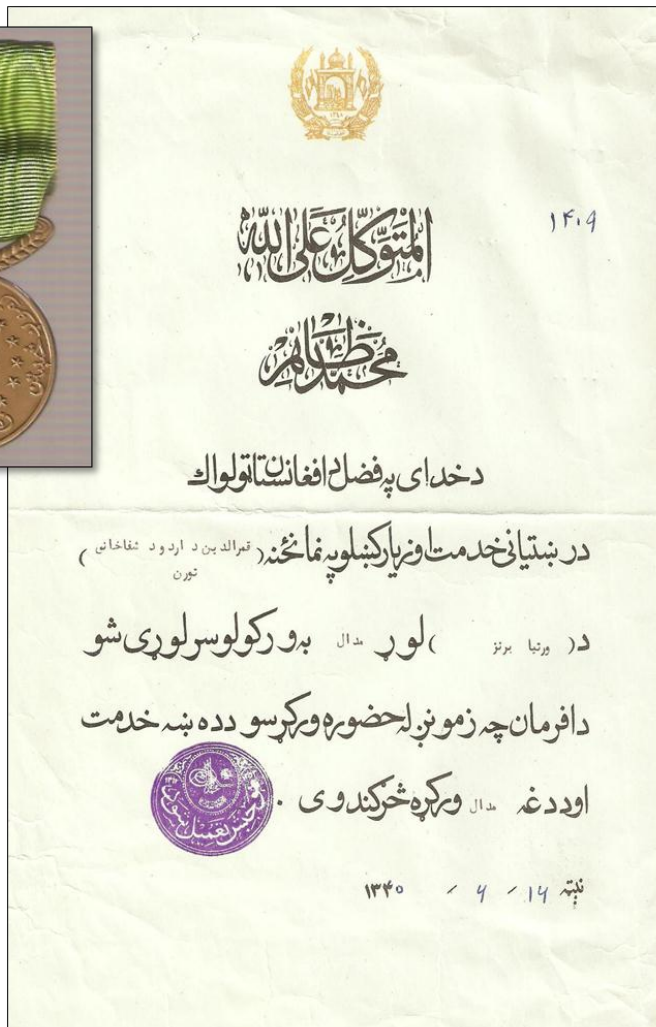 ۱۴۰۹
المتوکل علی الله
محمد ظاهر
د خدای په فضل د افغانستان تولواک
د رښتیانی خدمت او زیار کښلو په نمانځنه ( قمرالدین د اردو د شفاخانی
تورن )
د ( ورتیا برنز ) لوړ مدال په ورکولو سر لوړی شو
دا فرمان چه زمونږ له حضوره ورکړ سو د ده ښه خدمت
او د دغه مدال ورکړه څرګندوی .
نیټه ۱۶ / ۶ / ۱۳۴۰